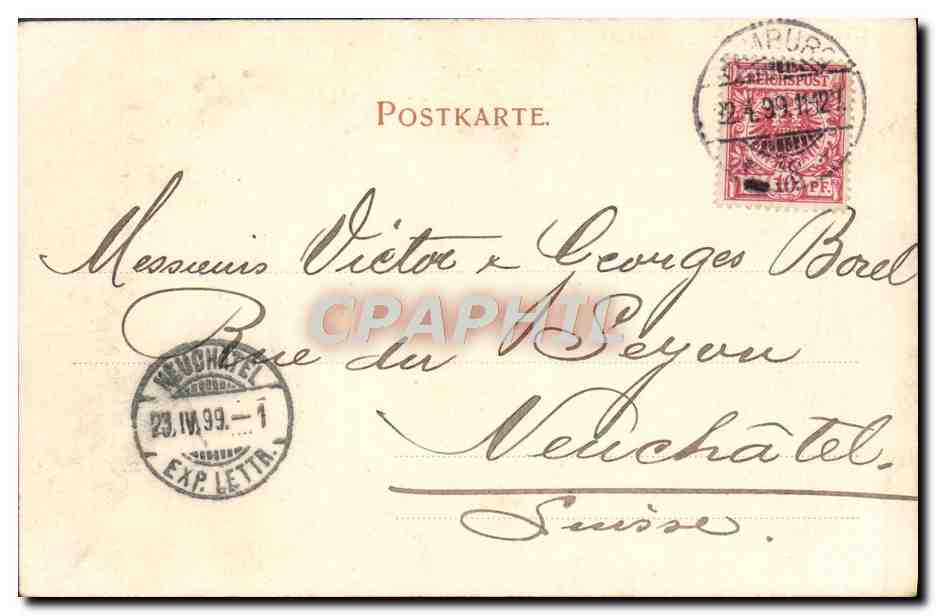 POSTKARTE.
REICHSPOST
22.4.99.11-12V.
10 PF.
Messieurs Victor & Georges Borel
Rue du Seyon
Neuchâtel.
Suisse.
NEUCHÂTEL
23.IV.99.–1
EXP. LETTR.
CPAPHIL